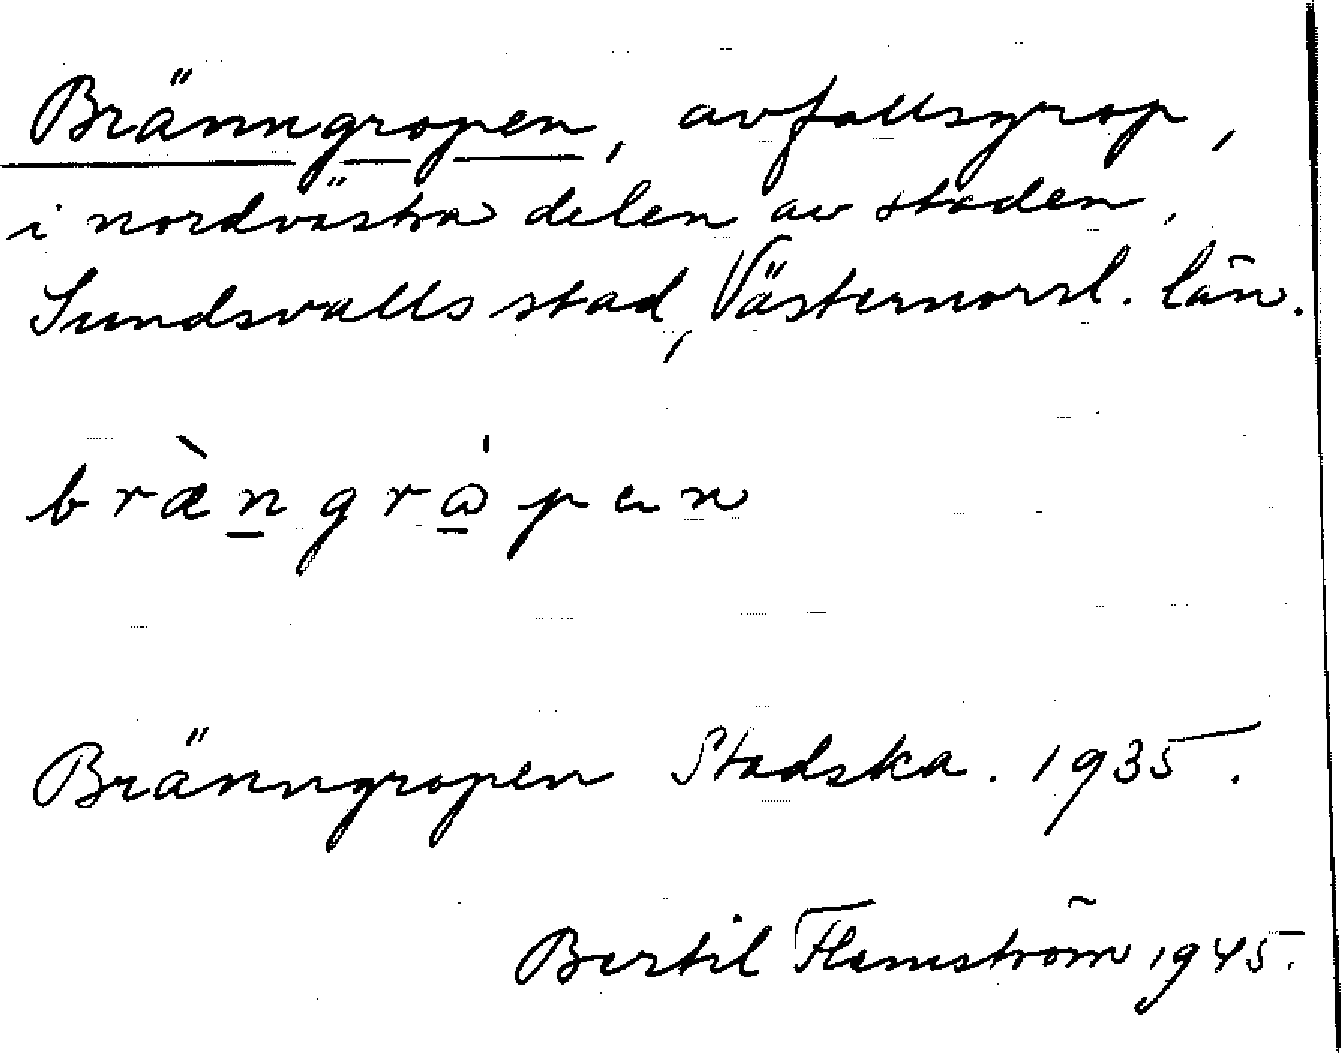 Bränngropen, avfallsgrop,
i nordvästra delen av staden,
Sundsvalls stad, Västernorrl. län.
bræ̀ngrǻpen
Bränngropen Stadska. 1935.
Bertil Flemström 1945.